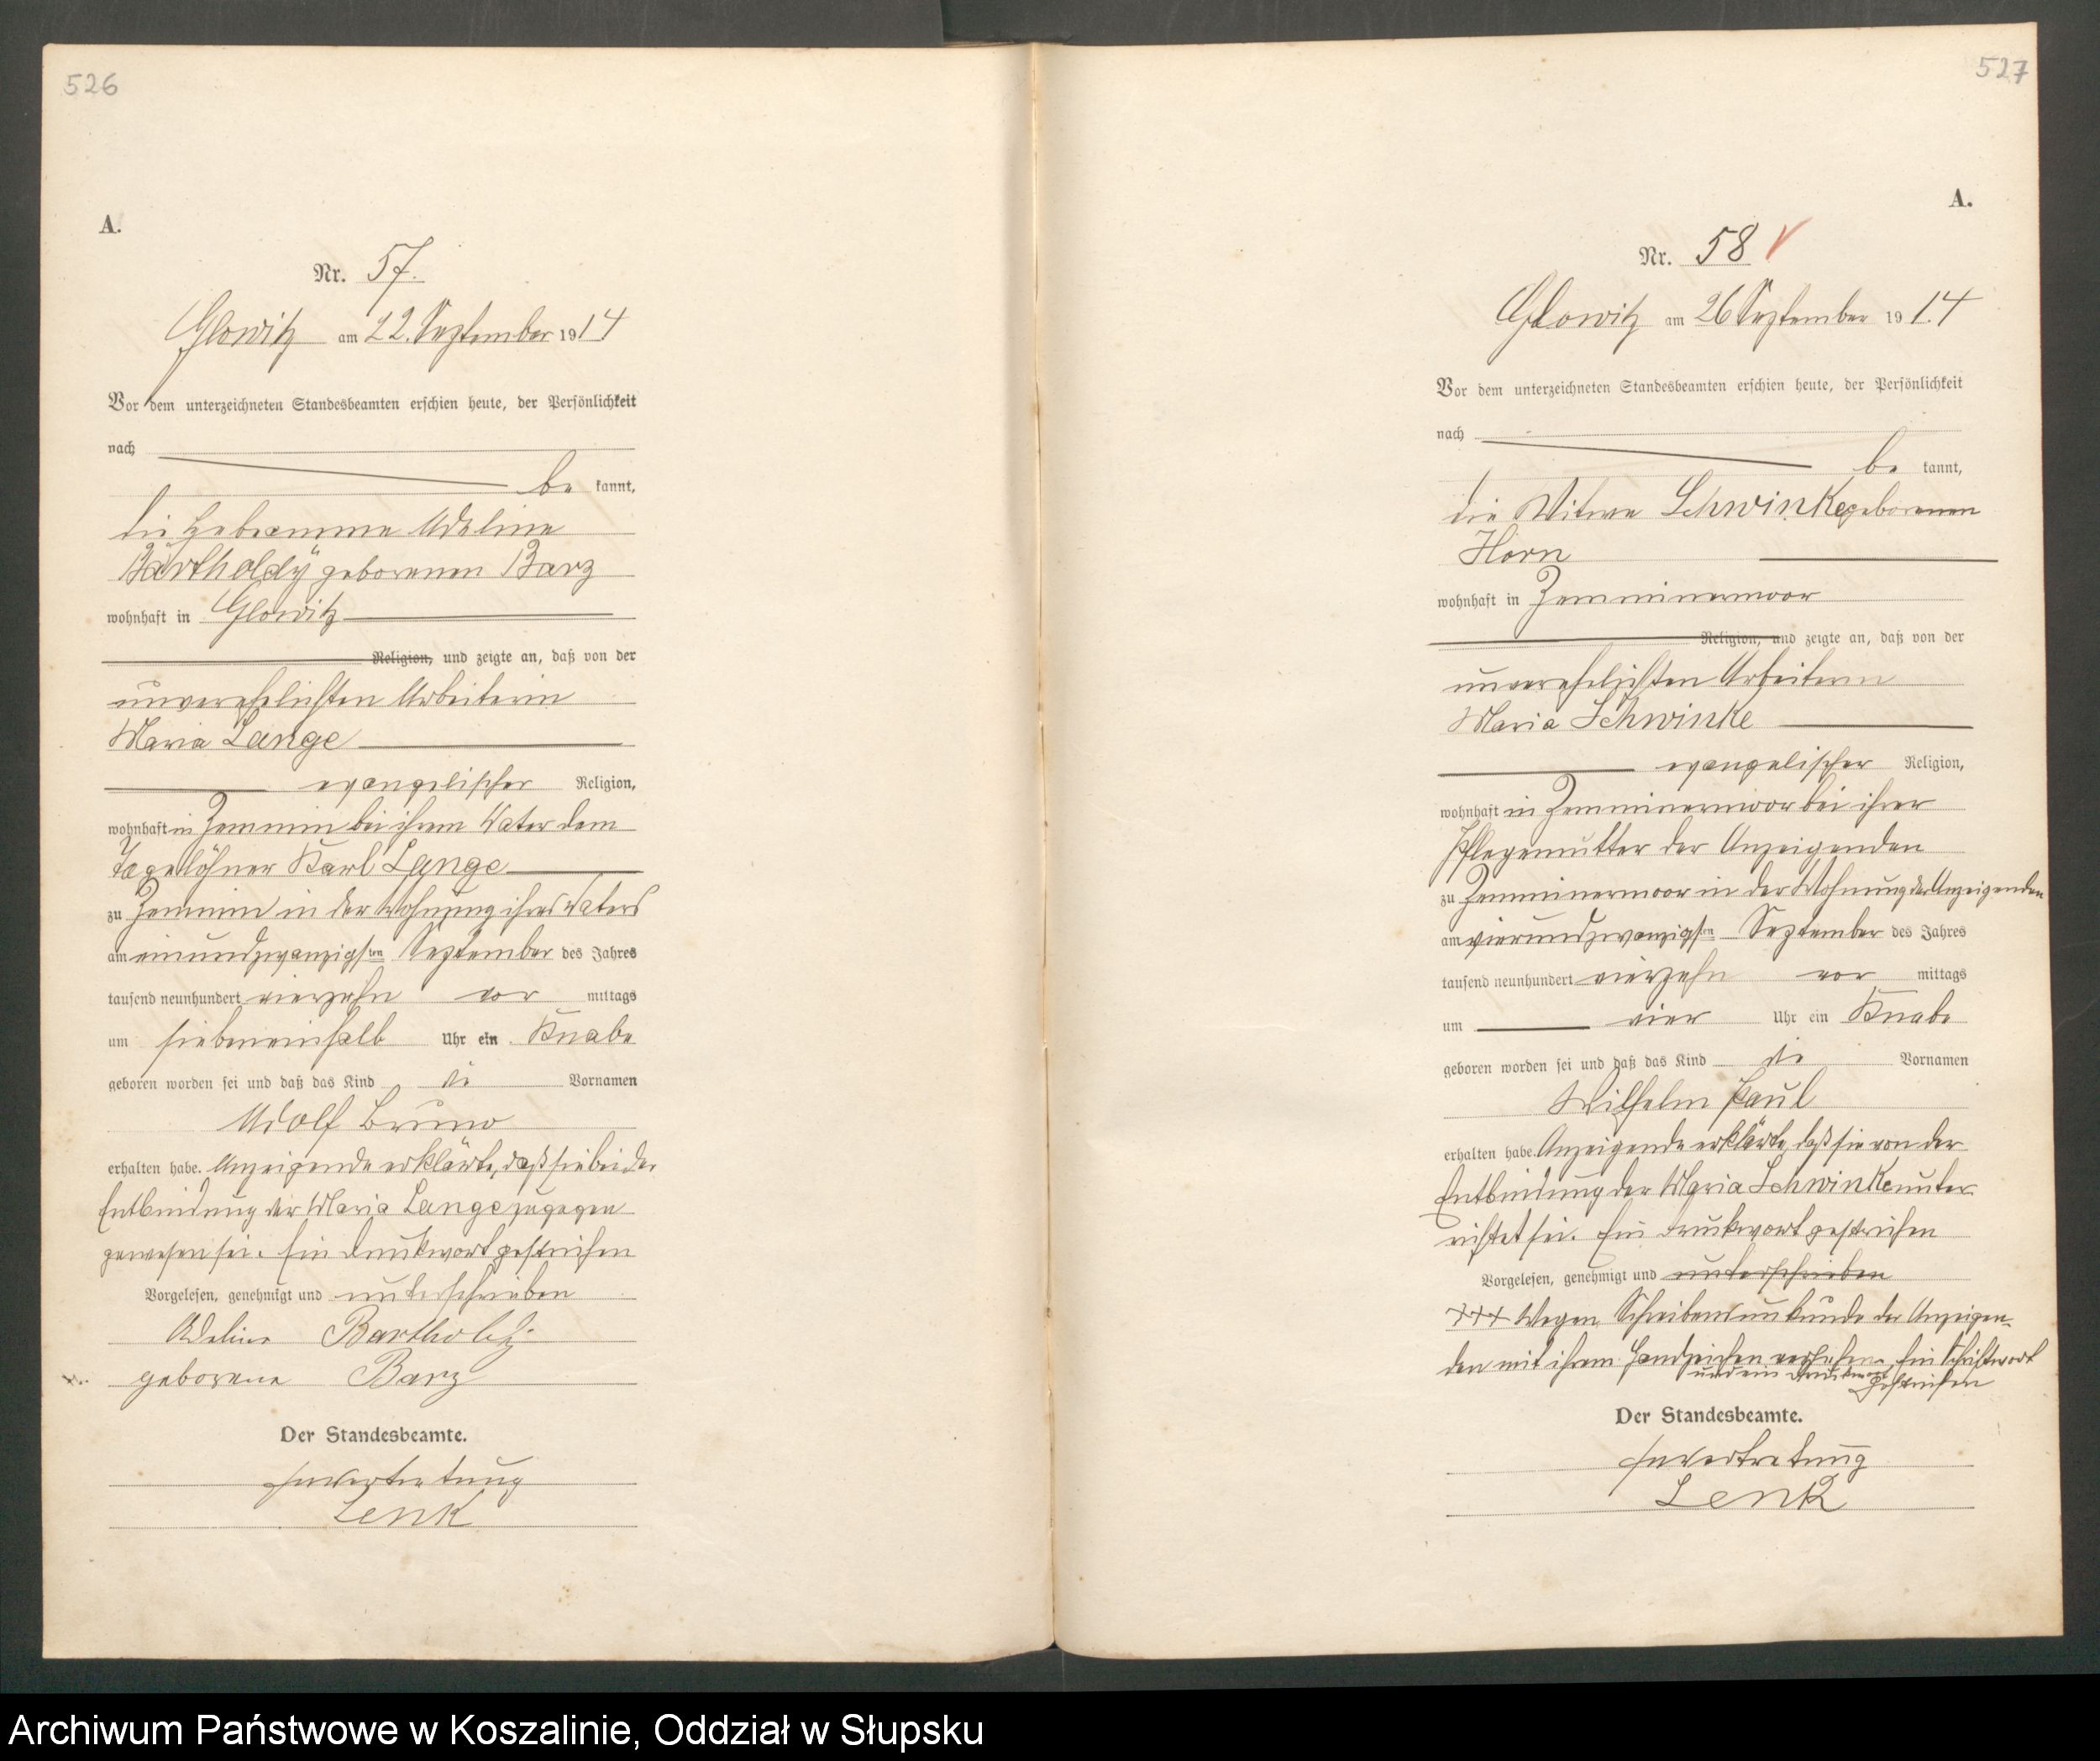 526
A.
Nr. 57.
Glowitz am 22. September 1914
Vor dem unterzeichneten Standesbeamten erschien heute, der Persönlichkeit
nach
be kannt,
die Hebamme Adeline
Bartholdy geborenen Barz
wohnhaft in Glowitz
Religion, und zeigte an, daß von der
unverehelichten Arbeiterin
Maria Lange
evangelischer Religion,
wohnhaft in Zemmin bei ihrem Vater dem
Tagelöhner Karl Lange
zu Zemmin in der Wohnung ihres Vaters
am einundzwanzigsten September des Jahres
tausend neunhundert vierzehn vor mittags
um siebeneinhalb Uhr ein Knabe
geboren worden sei und daß das Kind die Vornamen
Adolf Bruno
erhalten habe. Anzeigende erklärte, daß sie bei der
Entbindung der Maria Lange zugegen
gewesen sei. Ein Druckwort gestrichen
Vorgelesen, genehmigt und unterschrieben
Adeline
geborene Barz
Der Standesbeamte.
In Vertretung
Lenk
527
A.
Nr. 58
Glowitz am 26 September 1914
Vor dem unterzeichneten Standesbeamten erschien heute, der Persönlichkeit
nach
be kannt,
die Witwe Schwinke geborenen
Horn
wohnhaft in Zemminermoor
Religion, und zeigte an, daß von der
unverehelichten Arbeiterin
Maria Schwinke
evangelischer Religion,
wohnhaft in Zemminermoor bei ihrer
Pflegemutter der Anzeigenden
zu Zemminermoor in der Wohnung der Anzeigenden
am vierundzwanzigsten September des Jahres
tausend neunhundert vierzehn vor mittags
um vier Uhr ein Knabe
geboren worden sei und daß das Kind die Vornamen
Wilhelm Paul
erhalten habe. Anzeigende erklärte, daß sie von der
Entbindung der Maria Schwinke unter
richtet sei. Ein Druckwort gestrichen
Vorgelesen, genehmigt und unterschrieben
+++ Wegen Schreibensunkunde der Anzeigen-
den mit ihrem Handzeichen versehen. Ein Schriftwort
und ein Druckwort gestrichen
Der Standesbeamte.
In Vertretung
Lenk
Archiwum Państwowe w Koszalinie, Oddział w Słupsku